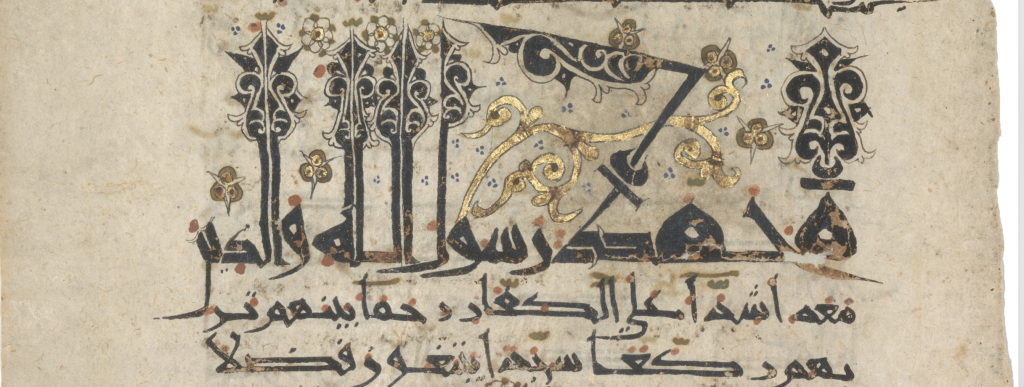 محمد رسول الله والذين
معه أشداء على الكفار رحماء بينهم تر
يهم ركعا سجدا يبتغون فضلا